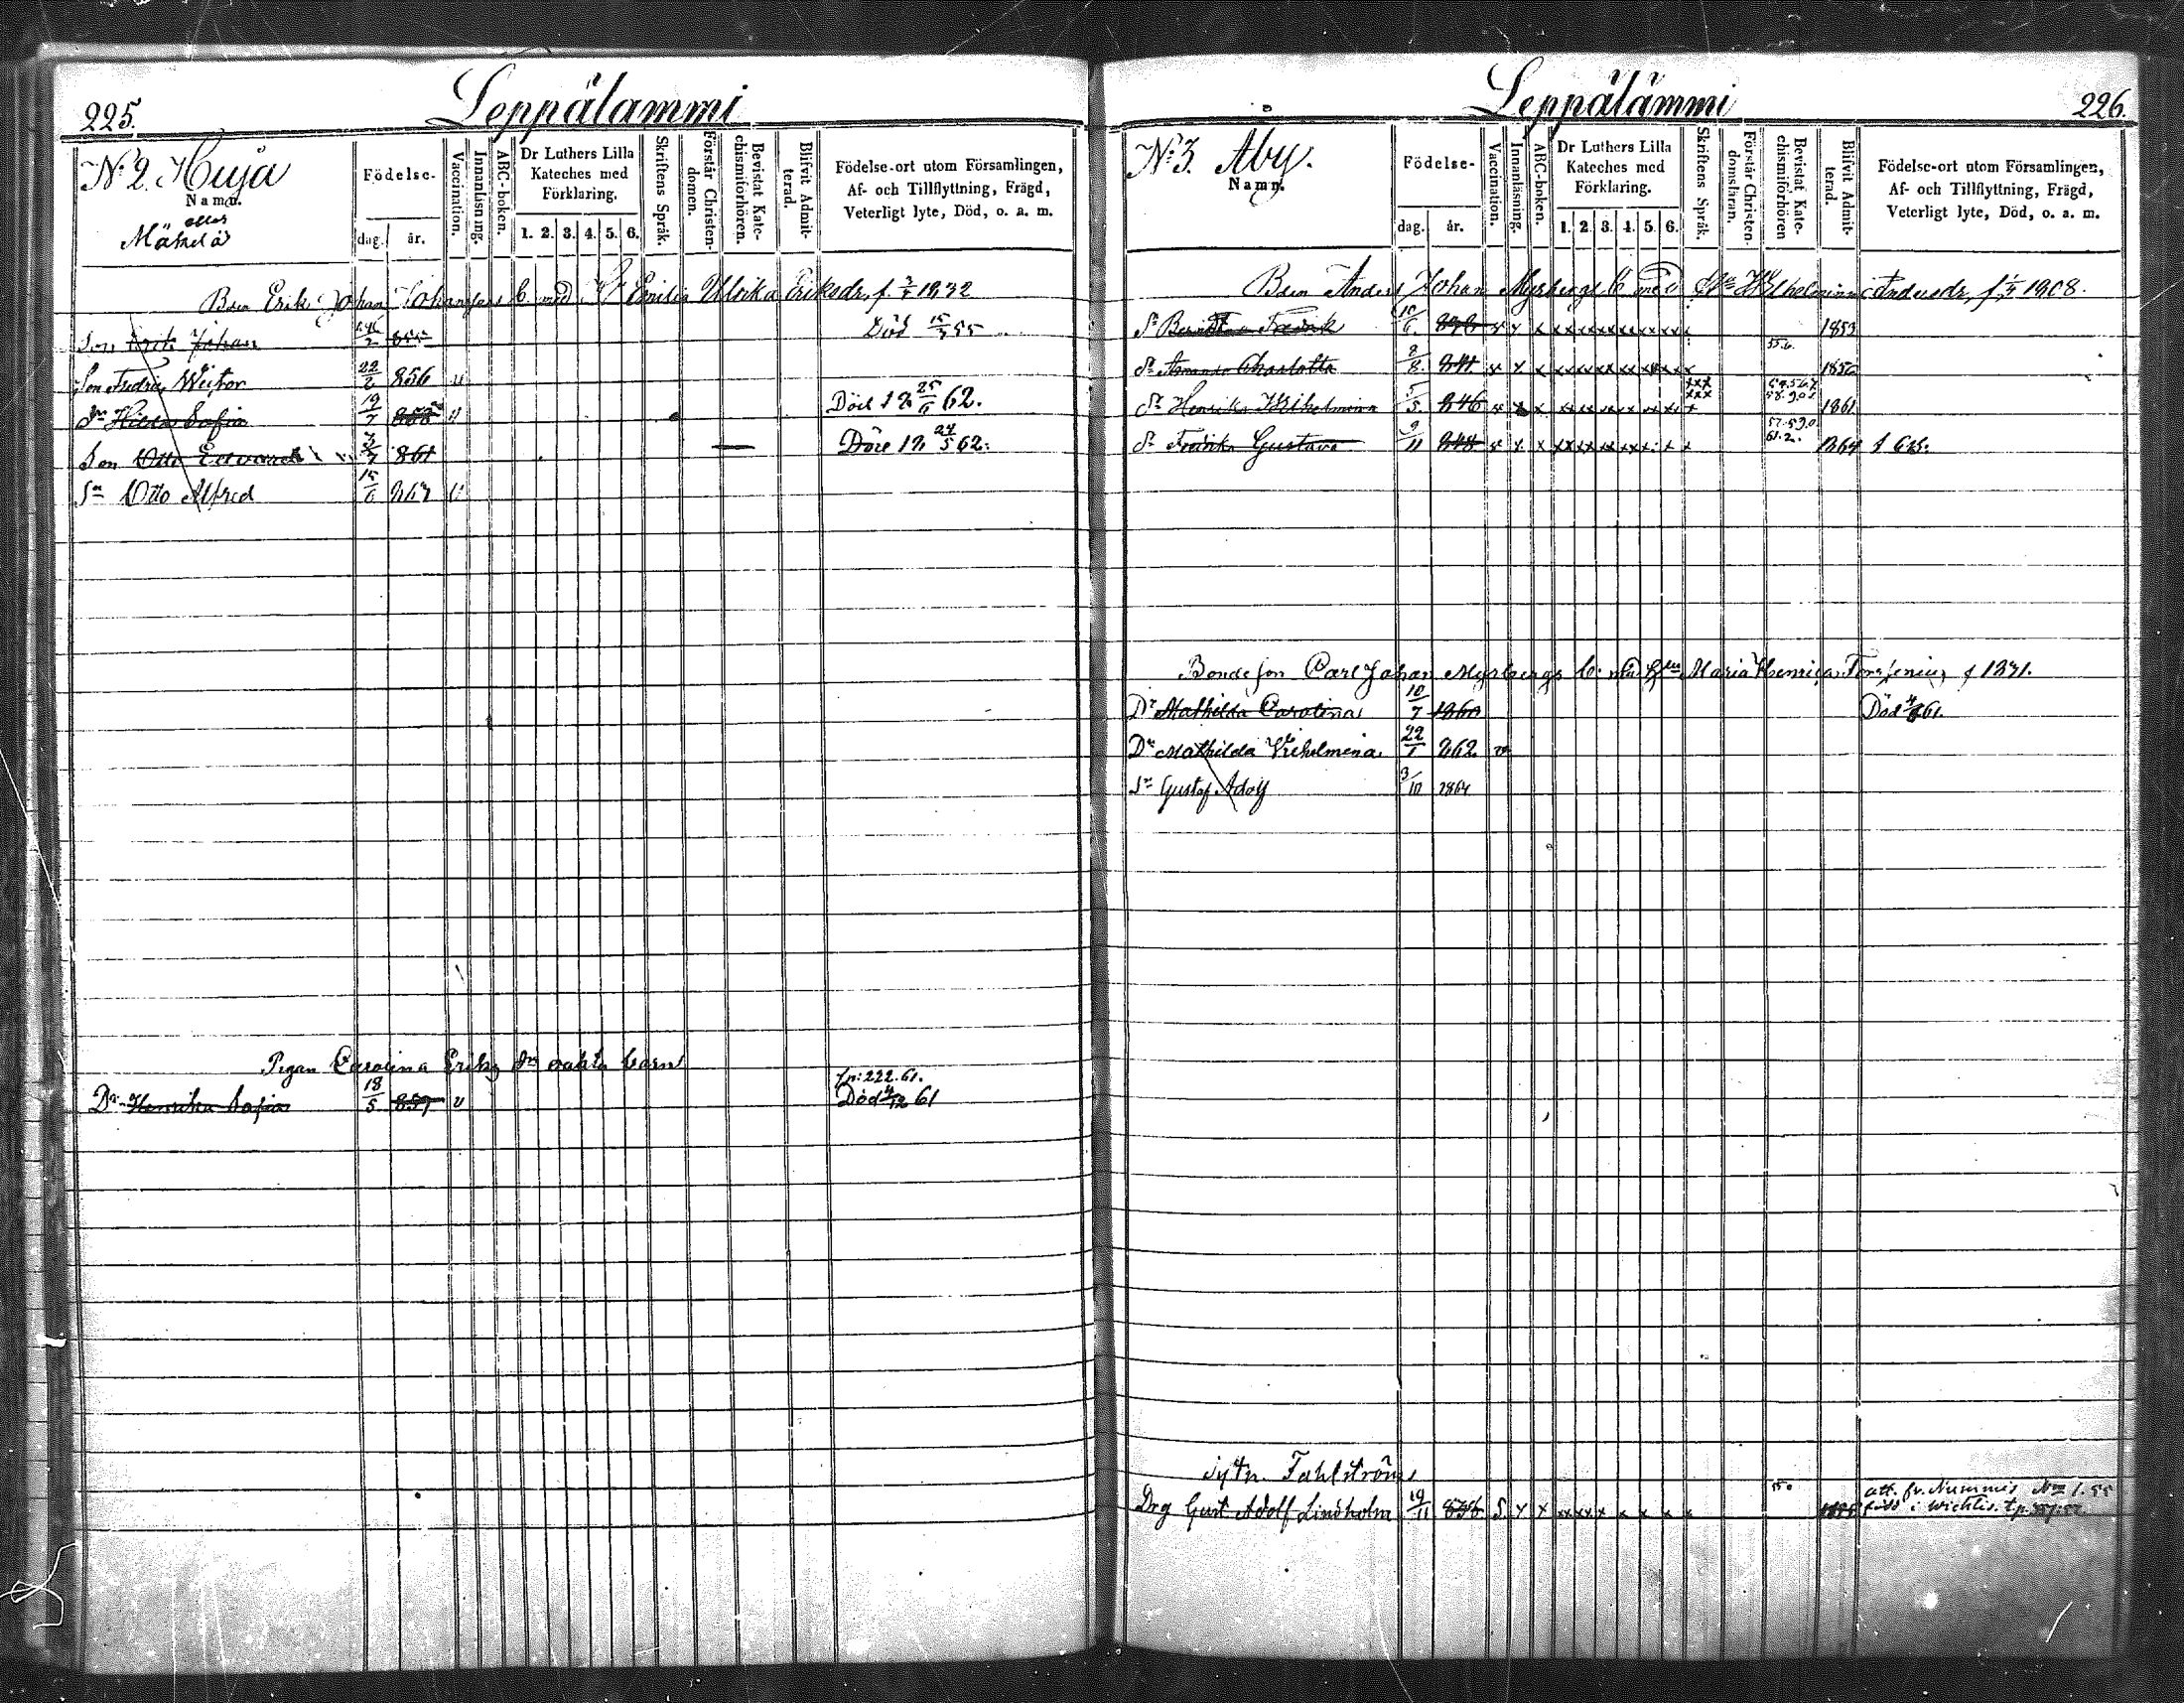 225. Leppälammi
N:o 2. Huja
Namn.
eller
Mäkelä
Födelse-
dag. år.
Vaccination.
Innanläsning.
ABC-boken.
Dr Luthers Lilla Kateches med Förklaring.
1. 2. 3. 4. 5. 6.
Skriftens Språk.
Förstår Christen-domen.
Bevistat Kate-chismiförhören.
Blifvit Admit-terad.
Födelse-ort utom Församlingen,
Af- och Tillflyttning, Frägd,
Veterligt lyte, Död, o. a. m.
Bden Erik Johan Johanssons b. med Emilia Ulrika Eriksdr, f. 1832
Son Erik Johan 855 Död 55
Son Fredric Victor 22/2 856 v
Dr Hilda Sofia 19/7 858 v Död 25/6 62.
Son Otto Edvard 861 Död 24/5 62.
Sn Otto Alfred 15/6 863 v
Pigan Carolina Eriks dr oäkta barn
fr: 222. 61.
Dr Henrika Sofia 18/5 859 v Död 4/12 61
Leppälämmi 226.
N:o 3. Åby.
Namn.
Födelse-
dag. år.
Vaccination.
Innanläsning.
ABC-boken.
Dr Luthers Lilla Kateches med Förklaring.
1. 2. 3. 4. 5. 6.
Skriftens Språk.
Förstår Christen-domsläran.
Bevistat Kate-chismiförhören
Blifvit Admit-terad.
Födelse-ort utom Församlingen,
Af- och Tillflyttning, Frägd,
Veterligt lyte, Död, o. a. m.
Bden Anders Johan Myrbergs b med Wilhelmina Andersdr, f. 1808.
Fredrik 10/6 x x x x x x x x x 1853
Amanda Charlotta 841 x x x x x x x x x
Henrika Wilhelmina 5/5 846 x x x x x x x x 1861
Fredrika Gustava 9/11 848 x x x x x x x x x 1864
Bondeson Carl Johan Myrbergs b. Maria Henrica f 1831.
Dr Mathilda Carolina 10/7 1860 Död 61.
Dr Mathilda Vilhelmina 22/1 862 v
Sn Gustaf Adolf 3/10 1864
Sytn. Fahlström
Drg Gust Adolf Lindholm 19/11 x x x x x x x x att. fr. Nummis
född i Wichtis.